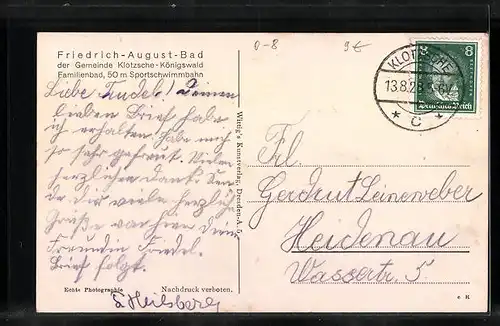 Friedrich-August-Bad
der Gemeinde Klotzsche-Königswald
Familienbad, 50 m Sportschwimmbahn
Liebe Trudel! Deinen
lieben Brief habe
ich erhalten. Habe mich
so sehr gefreut. Vielen
herzlichen Dank. Sen
de dir viele herzliche
Grüße von hier deine
Freundin Friedel.
Brief folgt.
Echte Photographie Nachdruck verboten.
S. Heilsberg
Wittig's Kunstverlag, Dresden-A. 5.
0-8 9€
KLOTZSCHE
13.8.28
* C *
8 8
Deutsches Reich
Frl.
Gerdrut Leineweber
Heidenau
Wasserstr. 5.
c K